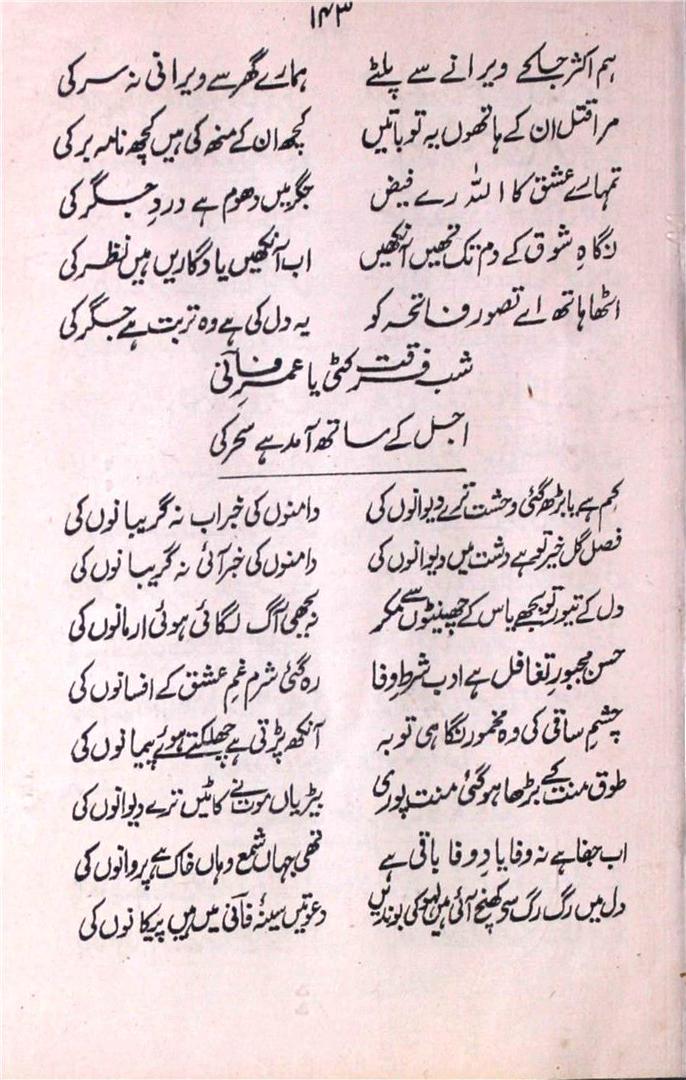 ۱۴۳
ہم اکثر جا کے ویرانے سے پلٹے ہمارے گھر سے ویرانی نہ سرکی
مرا قتل ان کے ہاتھوں یہ تو باتیں کچھ ان کے منھ کی ہیں کچھ نامہ بر کی
تمہارے عشق کا اللہ رے فیض جگر میں دھوم ہے دردِ جگر کی
نگاہِ شوق کے دم تک تھیں آنکھیں اب آنکھیں یادگاریں ہیں نظر کی
اٹھا ہاتھ اے تصور فاتحہ کو یہ دل کی ہے وہ تربت ہے جگر کی
شب فرقت کٹی یا عمر فانیؔ
اجل کے ساتھ آمد ہے سحر کی
کم ہے یا بڑھ گئی وحشت ترے دیوانوں کی دامنوں کی خبر اب نہ گریبانوں کی
فصل گل خیر تو ہے دشت میں دیوانوں کی دامنوں کی خبر آئی نہ گریبانوں کی
دل کے تیور تو بجھے یاس کے چھینٹوں سے مگر نہ بجھی آگ لگائی ہوئی ارمانوں کی
حسن مجبورِ تغافل ہے ادب شرطِ وفا رہ گئی شرم غمِ عشق کے افسانوں کی
چشمِ ساقی کی وہ مخمور نگاہی توبہ آنکھ پڑتی ہے چھلکتے ہوئے پیمانوں کی
طوق منت کے بڑھا ہو گئی منت پوری بیڑیاں موت نے کاٹیں ترے دیوانوں کی
اب جفا ہے نہ وفا یادِ وفا باقی ہے تھی جہاں شمع وہاں خاک ہے پروانوں کی
دل میں رگ رگ سے کھنچ آئی ہیں لہو کی بوندیں دعوتیں سینۂ فانیؔ میں ہیں پیکانوں کی